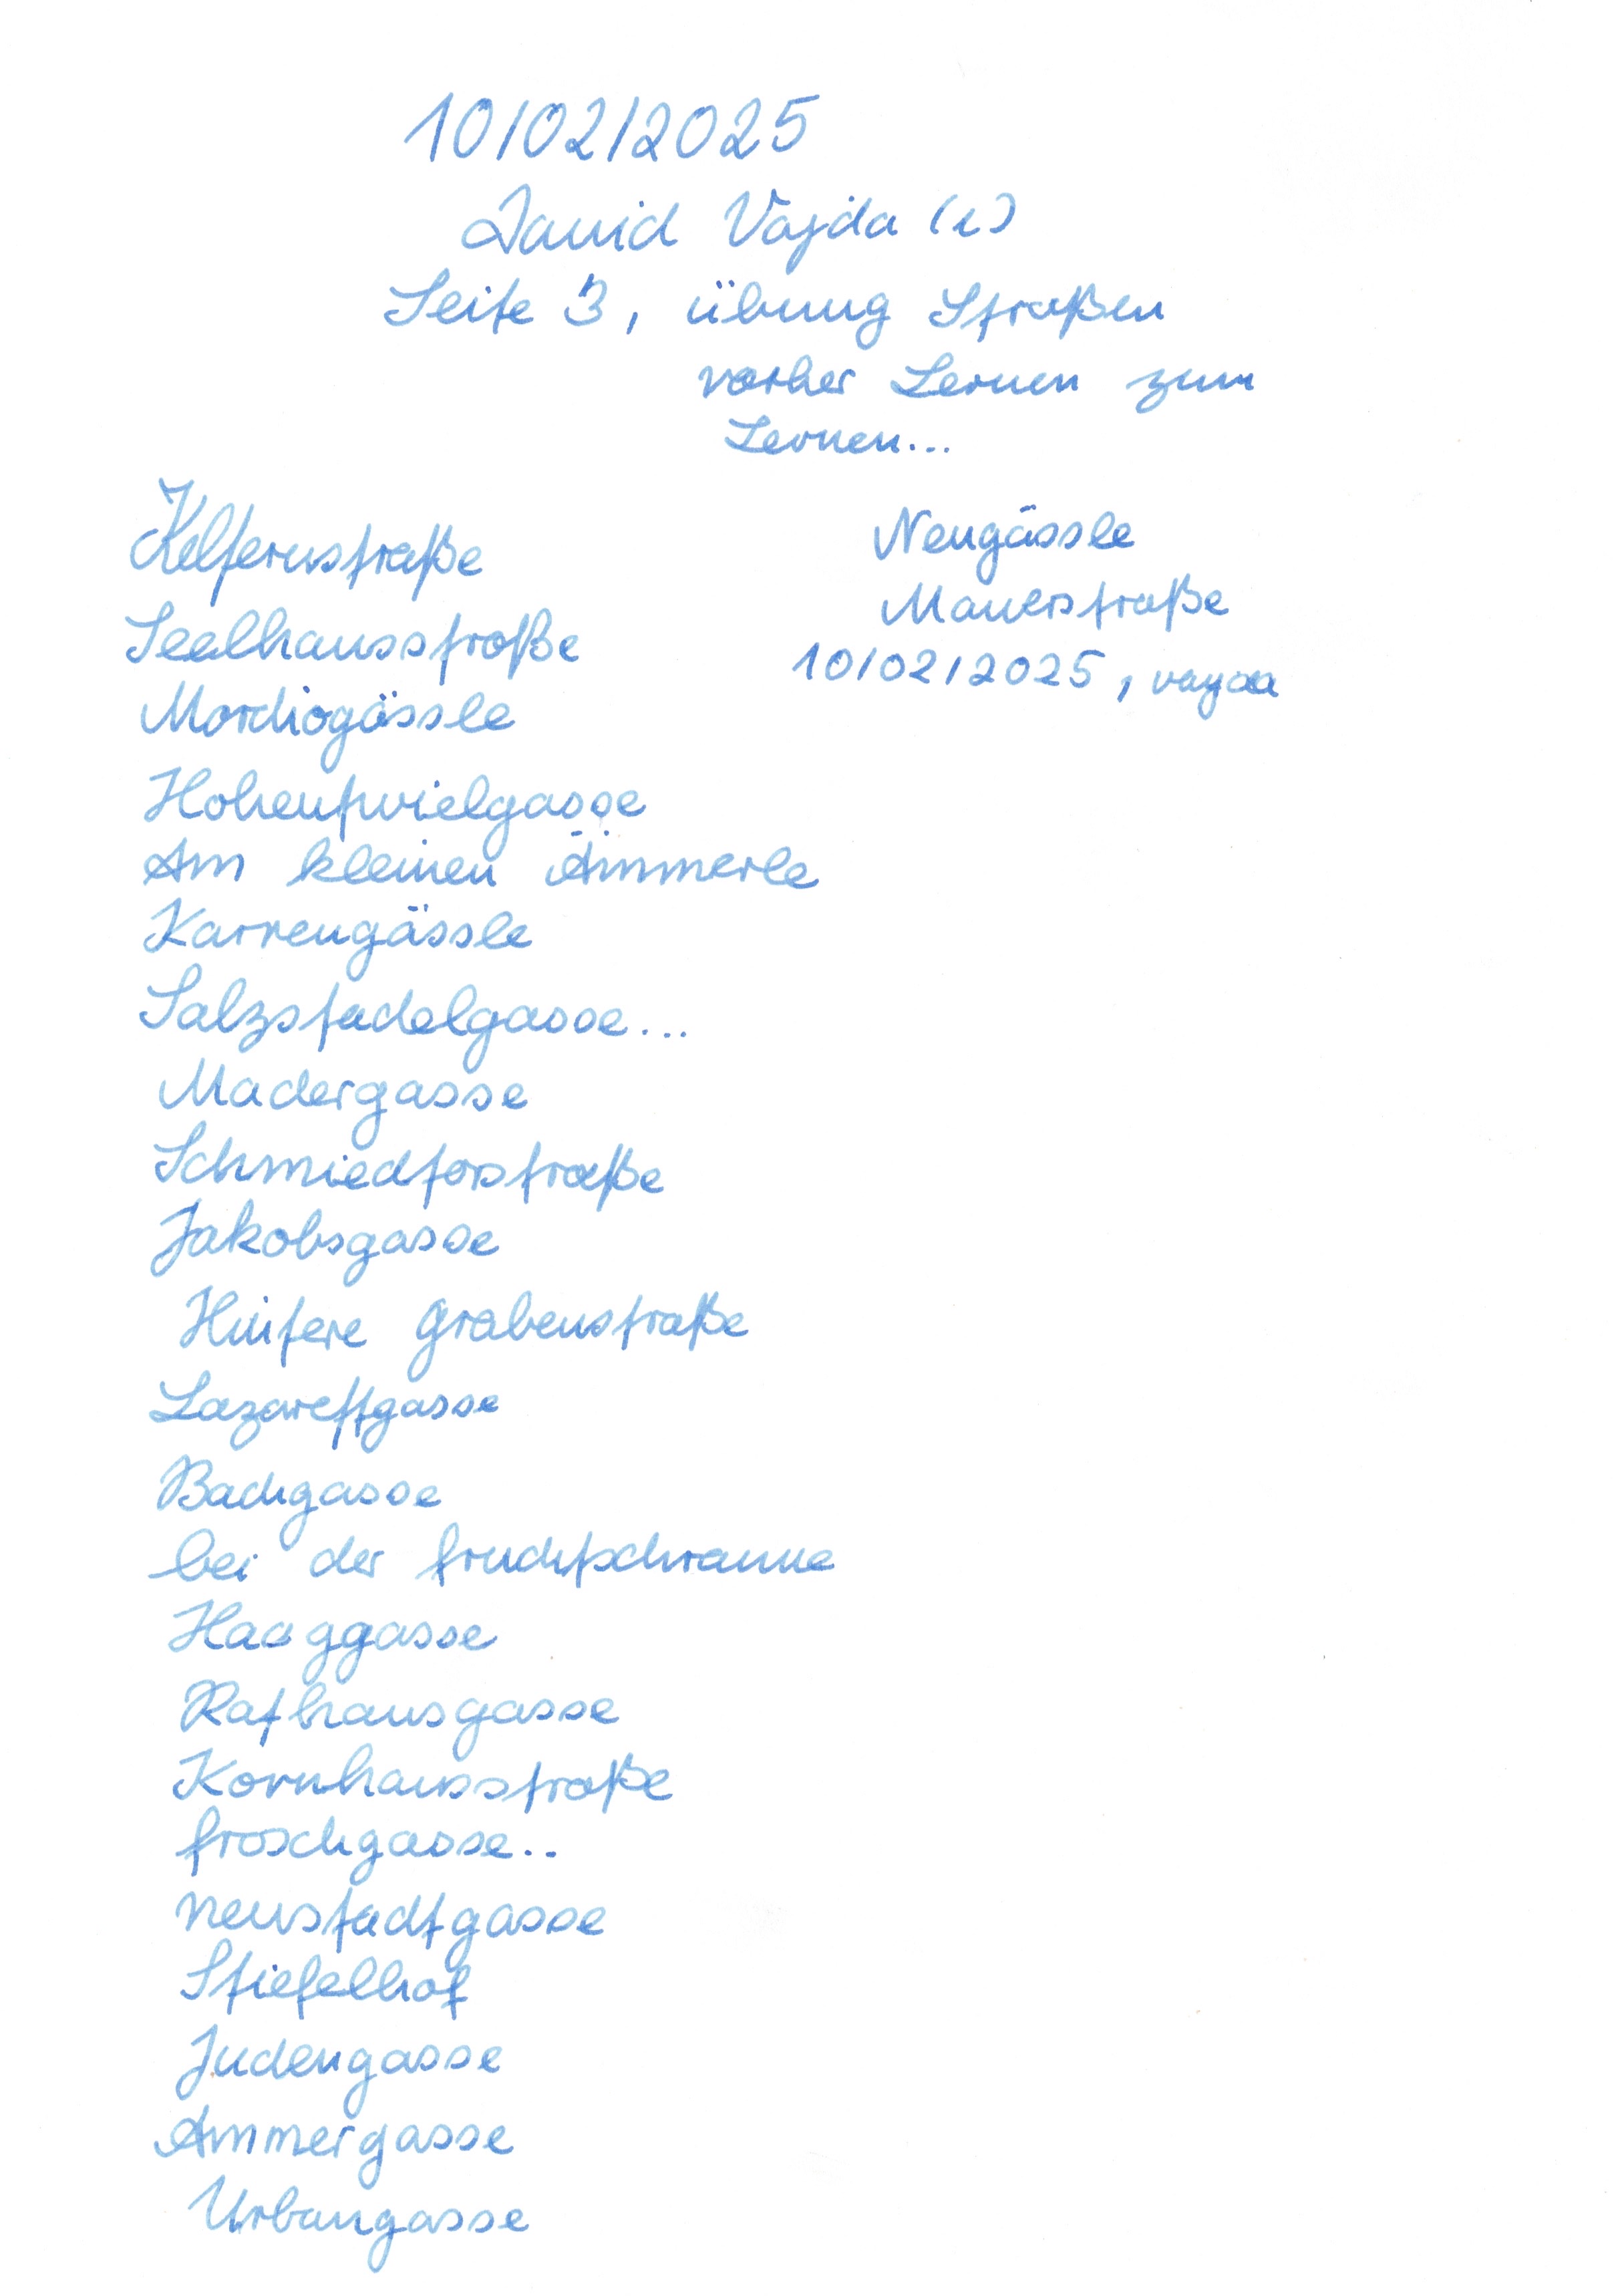 10/02/2025
David Vajda (1)
Seite 3, übung Straßen
vorher Lernen zum
Lernen...
Kelternstraße
Seelhausstraße
Mordiogässle
Hohentwielgasse
Am kleinen Ämmerle
Karrengässle
Salzstadelgasse...
Madergasse
Schmiedtorstraße
Jakobsgasse
Hintere Grabenstraße
Lazarettgasse
Bachgasse
bei der fruchtschranne
Haaggasse
Rathausgasse
Kornhausstraße
froschgasse..
neustadtgasse
Stiefelhof
Judengasse
Ammergasse
Urbangasse
Neugässle
Mauerstraße
10/02/2025,